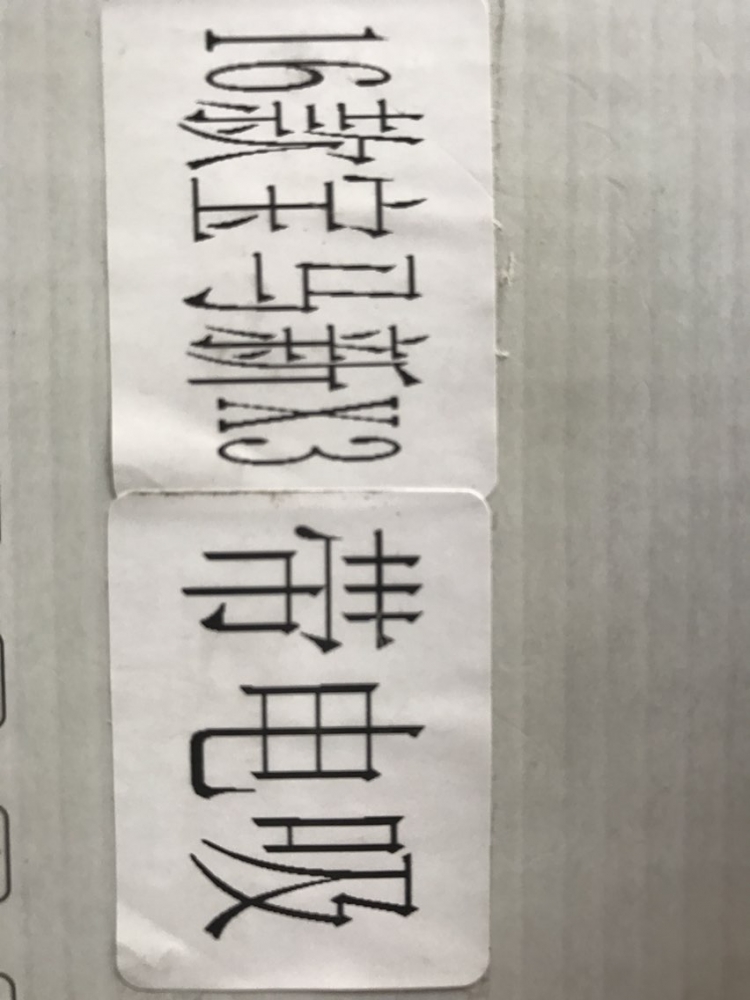 16款宝马新X3
带电吸